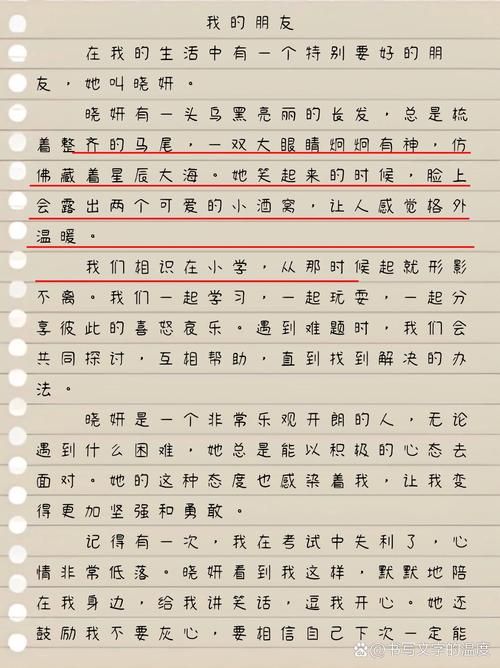 我的朋友
在我的生活中有一个特别要好的朋
友，她叫晓妍。
晓妍有一头乌黑亮丽的长发，总是梳
着整齐的马尾，一双大眼睛炯炯有神，仿
佛藏着星辰大海。她笑起来的时候，脸上
会露出两个可爱的小酒窝，让人感觉格外
温暖。
我们相识在小学，从那时候起就形影
不离。我们一起学习，一起玩耍，一起分
享彼此的喜怒哀乐。遇到难题时，我们会
共同探讨，互相帮助，直到找到解决的办
法。
晓妍是一个非常乐观开朗的人，无论
遇到什么困难，她总是能以积极的心态去
面对。她的这种态度也感染着我，让我变
得更加坚强和勇敢。
记得有一次，我在考试中失利了，心
情非常低落。晓妍看到我这样，默默地陪
在我身边，给我讲笑话，逗我开心。她还
鼓励我不要灰心，要相信自己下次一定能
书写文字的温度